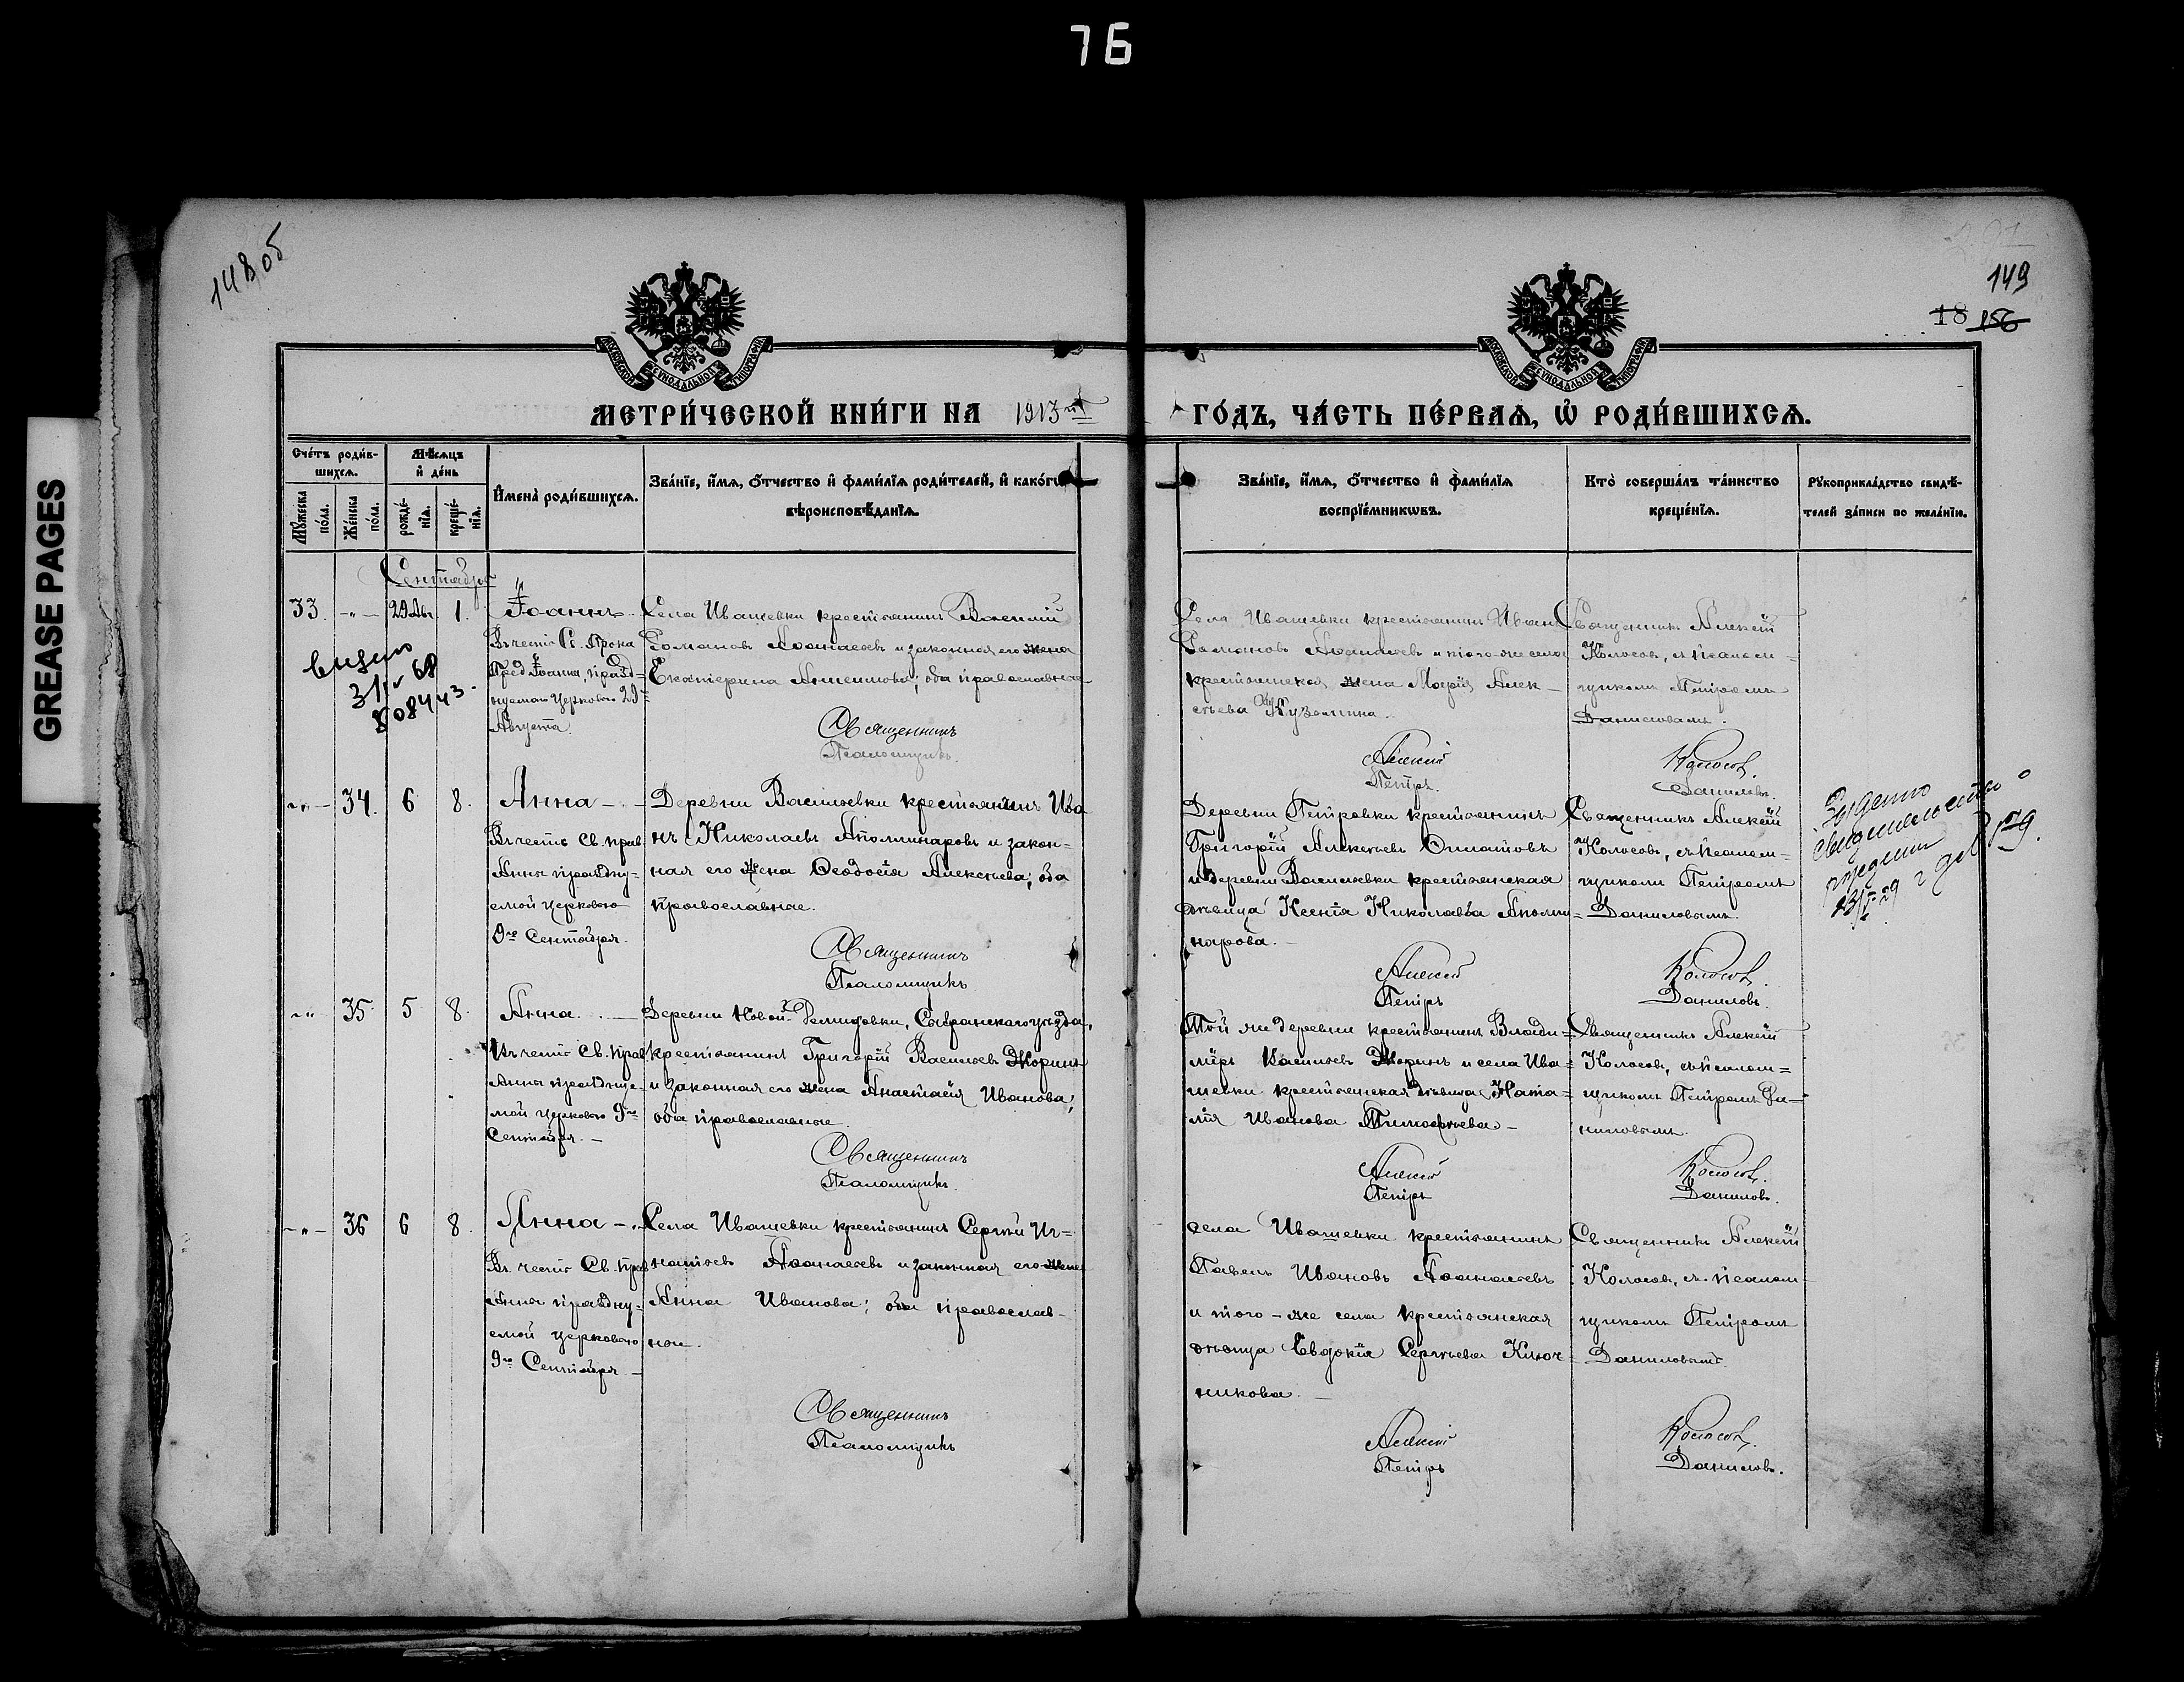 76
GREASE PAGES
148об
149
18 156
МОСКОВСКОЙ СУНОДАЛЬНОЙ ТИПОГРАФІИ
МОСКОВСКОЙ СУНОДАЛЬНОЙ ТИПОГРАФІИ
МЕТРИ́ЧЕСКОЙ КНИ́ГИ НА 1913 й
ГО́ДЪ, ЧА́СТЬ ПЕ́РВАѦ, Ѡ҆ РОДИ́ВШИХСѦ.
Сче́тъ роди́в-
шихсѧ.
Мѣ́сѧцъ
и҆ де́нь
Мꙋ́жеска по́ла.
Же́нска по́ла.
рожде́-
нїѧ.
креще́-
нїѧ.
И҆мена̀ роди́вшихсѧ.
Зва́нїе, и҆́мѧ, ѻ҆́тчество и҆ фами́лїѧ роди́телей, и҆ како́гѡ
вѣроисповѣ́данїѧ.
Зва́нїе, и҆́мѧ, ѻ҆́тчество и҆ фами́лїѧ
воспрїе́мникѡвъ.
Кто̀ соверша́лъ та́инство
креще́нїѧ.
Рꙋкоприкла́дство свидѣ́-
телей за́писи по жела́нїю.
Сентября
33. -„- 29 Ав. 1. Іоаннъ
Въ честь Св. Прока
Пред. Іоанна, празд-
нуемаго Церковью 29
Августа.
Села Ивашевки крестьянинъ Василій
Романовъ Аѳанасьевъ и законная его жена
Екатерина; оба православные
Священникъ
Псаломщикъ.
Села Ивашевки крестьянинъ Иванъ
Романовъ Аѳанасьевъ и того-же села
крестьянская жена Марія Алек-
сѣева Кузьмина.
Алексій
Петръ.
Священникъ Алексій
Колосовъ, съ псалом-
щикомъ Петромъ
Даниловымъ.
Колосовъ.
Даниловъ.
-„- 34. 6 8. Анна -
Въ честь св. прав.
Анны празdну-
емой церковью
9го Сентября.
Деревни Васильевки крестьянинъ Ива
нъ Николаевъ Аполлинаровъ и закон-
ная его жена Ѳеодосія Алексѣева; оба
православные.
Священникъ
Псаломщикъ
Деревни Петровки крестьянинъ
Григорій Алексѣевъ
и деревни Васильевки крестьянская
дѣвица Ксенія Николаева Аполли-
нарова.
Алексій
Петръ
Священникъ Алексій
Колосовъ, съ псалом-
щикомъ Петромъ
Даниловымъ.
Колосовъ.
Даниловъ.
свидетельство
-„- 35 5 8. Анна. -
Въ честь Св. прав.
Анны празднуе-
мой церковью 9го
Сентября. -
Деревни Новой-, Сызранскаго уѣзда,
крестьянинъ Григорій Васильевъ Жоринъ
и законная его жена Анастасія Иванова;
оба православные.
Священникъ
Псаломщикъ.
Той же деревни крестьянинъ Влади-
міръ Васильевъ Жоринъ и села Ива-
шевки крестьянская дѣвица Ната-
лія Иванова Тимоѳеева -
Алексій
Петръ
Священникъ Алексій
Колосовъ, съ псалом-
щикомъ Петромъ Да-
ниловымъ.
Колосовъ.
Даниловъ.
-„- 36 6 8. Анна -
Въ честь Св. прав.
Анны празdну-
емой церковью
9го Сентября -
Села Ивашевки крестьянинъ Сергѣй Иг-
натьевъ Аѳанасьевъ и законная его жена
Анна Иванова; оба православ-
ные.
Священникъ
Псаломщикъ
села Ивашевки крестьянинъ
Павелъ Ивановъ Аѳанасьевъ
и того-же села крестьянская
дѣвица Евдокія Сергѣева Ключ-
никова. -
Алексій
Петръ
Священникъ Алексій
Колосовъ, съ псалом-
щикомъ Петромъ
Даниловымъ.
Колосовъ.
Даниловъ.